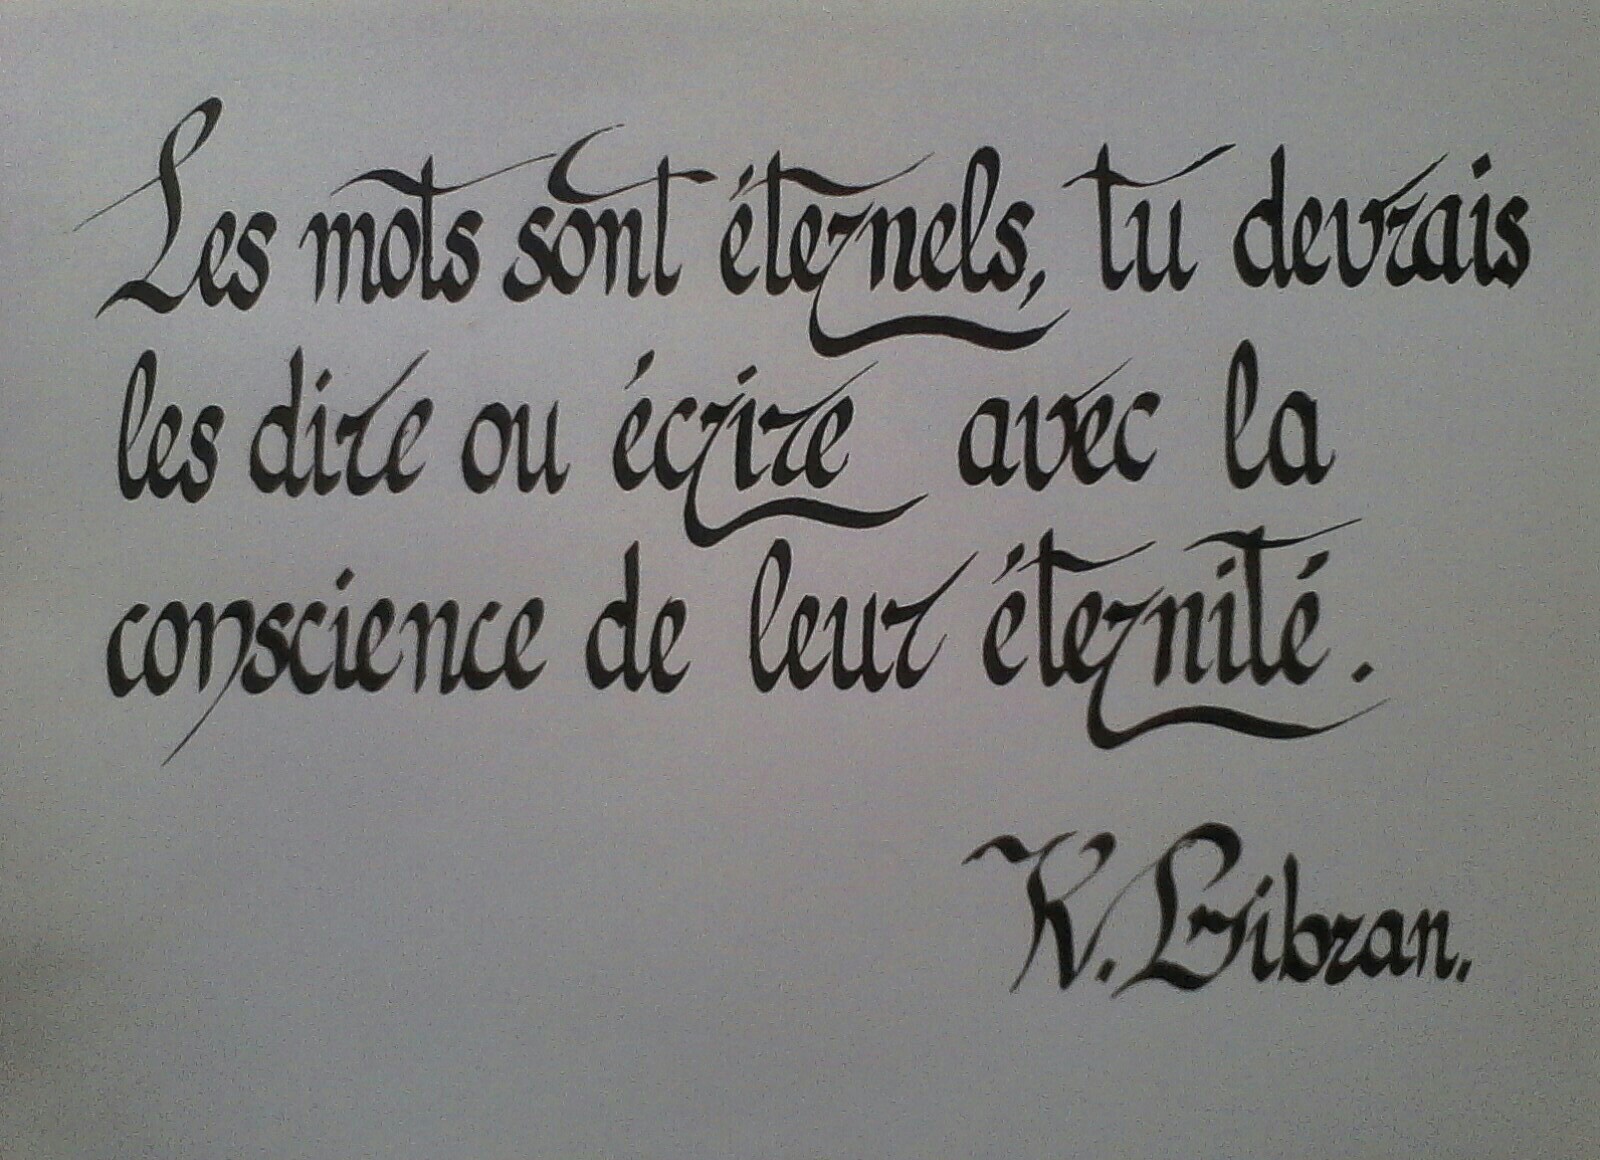 Les mots sont éternels, tu devrais
les dire ou écrire avec la
conscience de leur éternité.
K. Gibran.